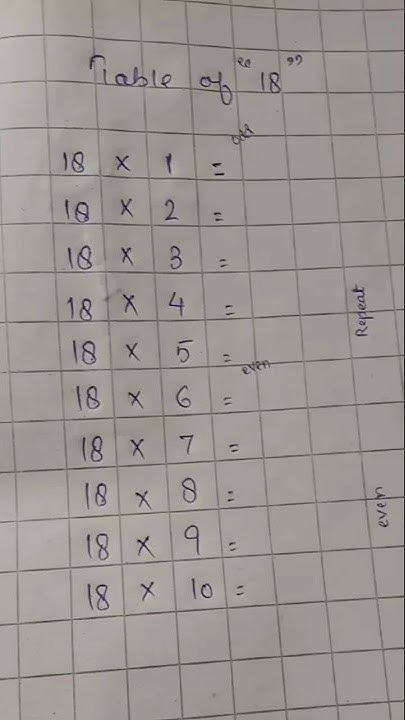 Table of "18"
odd
18 × 1 =
18 × 2 =
18 × 3 =
18 × 4 =
Repeat
18 × 5 =
even
18 × 6 =
18 × 7 =
18 × 8 =
even
18 × 9 =
18 × 10 =